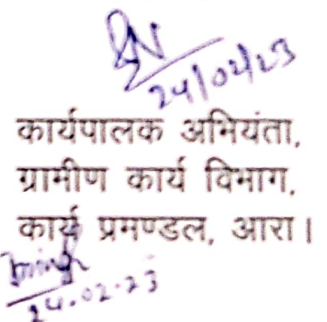 24/02/23
कार्यपालक अभियंता,
ग्रामीण कार्य विभाग,
कार्य प्रमण्डल, आरा।
24.02.23